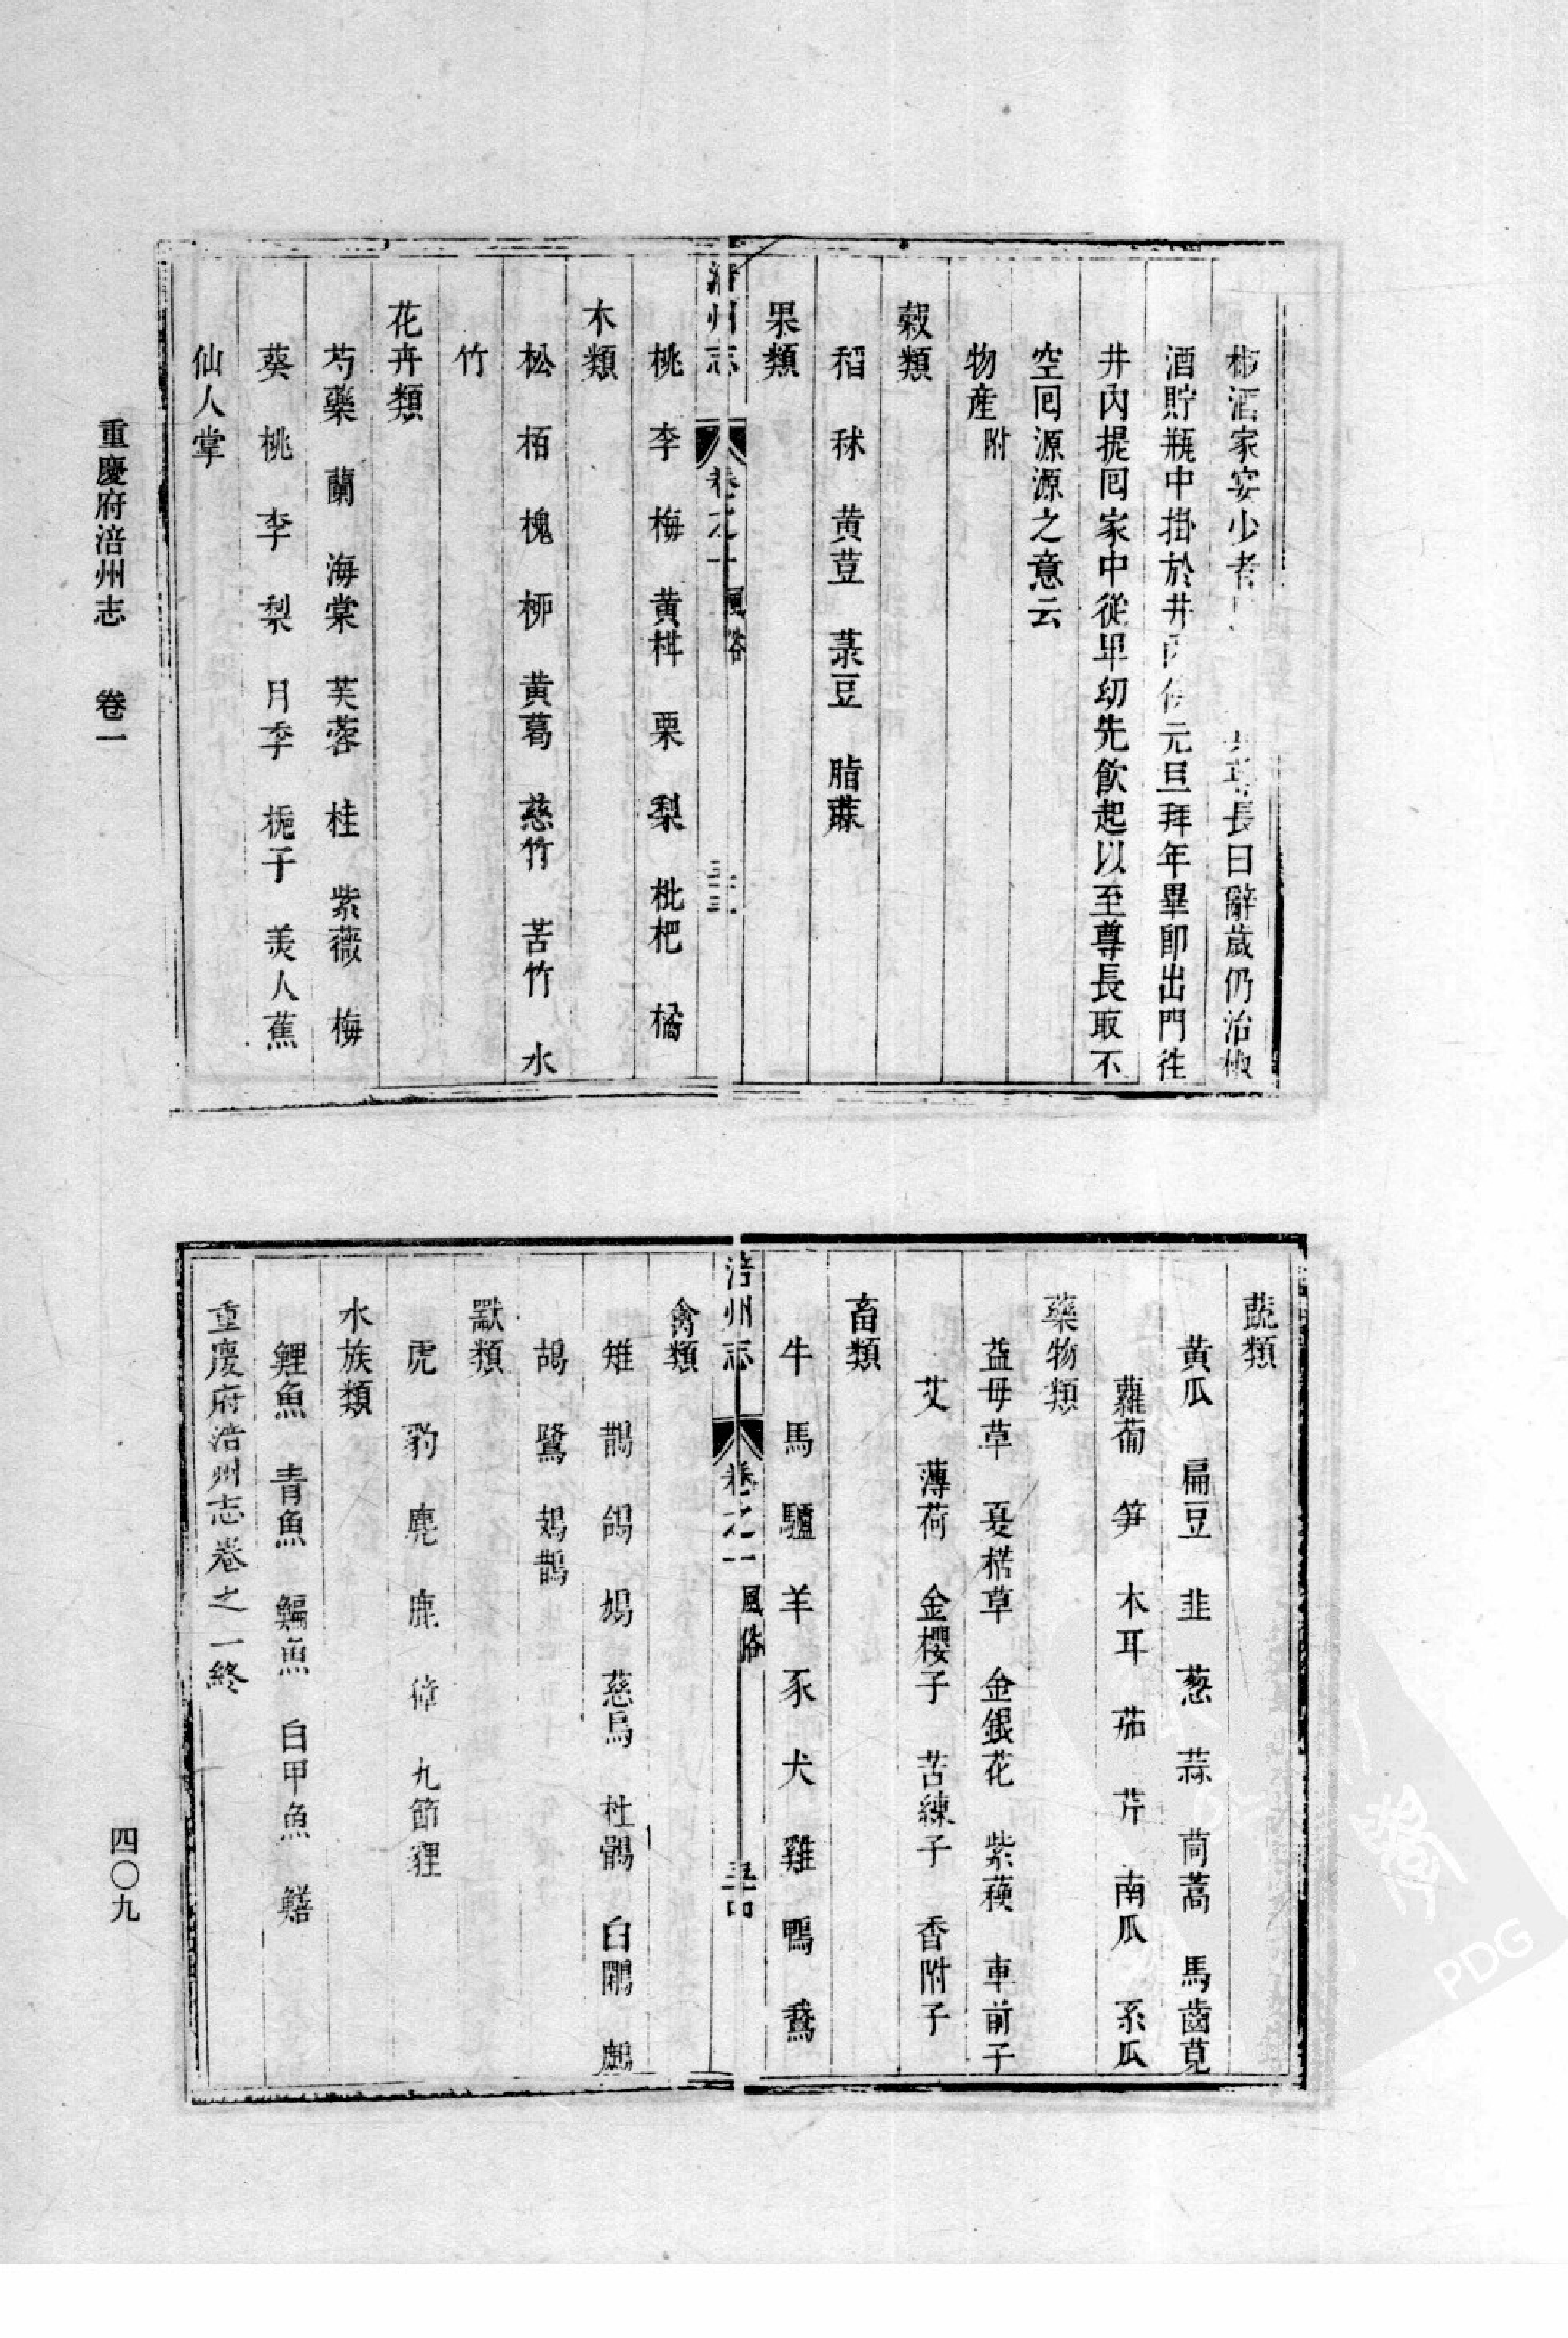 椒酒家宴少者
長曰辭歲仍治椒
酒貯瓶中掛於井
元旦拜年畢即出門往
井內提囘家中從卑幼先飲起以至尊長取不
空囘源源之意云
物產附
穀類
稻 秫 黃荳 菉豆 脂蔴
果類
涪州志 卷之一 風俗
桃 李 梅 黃柑 栗 梨 枇杷 橘
木類
松 栢 槐 栁 黃葛 慈竹 苦竹 水
竹
花卉類
芍藥 蘭 海棠 芙蓉 桂 紫薇 梅
葵 桃 李 梨 月季 梔子 美人蕉
仙人掌
重慶府涪州志 卷一
蔬類
黃瓜 扁豆 韭 葱 蒜 茼蒿 馬齒莧
蘿蔔 笋 木耳 茄 芹 南瓜 系瓜
藥物類
益母草 夏楛草 金銀花 紫蘓 車前子
艾 薄荷 金櫻子 苦練子 香附子
畜類
牛 馬 驢 羊 豕 犬 雞 鴨 鵞
涪州志 卷之一 風俗
禽類
雉 鵲 鴿 鳩 慈烏 杜鵑 白鷴 鷓
鴣 鷺 鴣鶄
獸類
虎 豹 麂 鹿 獐 九節狸
水族類
鯉魚 青魚 鯿魚 白甲魚 鱔
重慶府涪州志卷之一終
四〇九
PDG